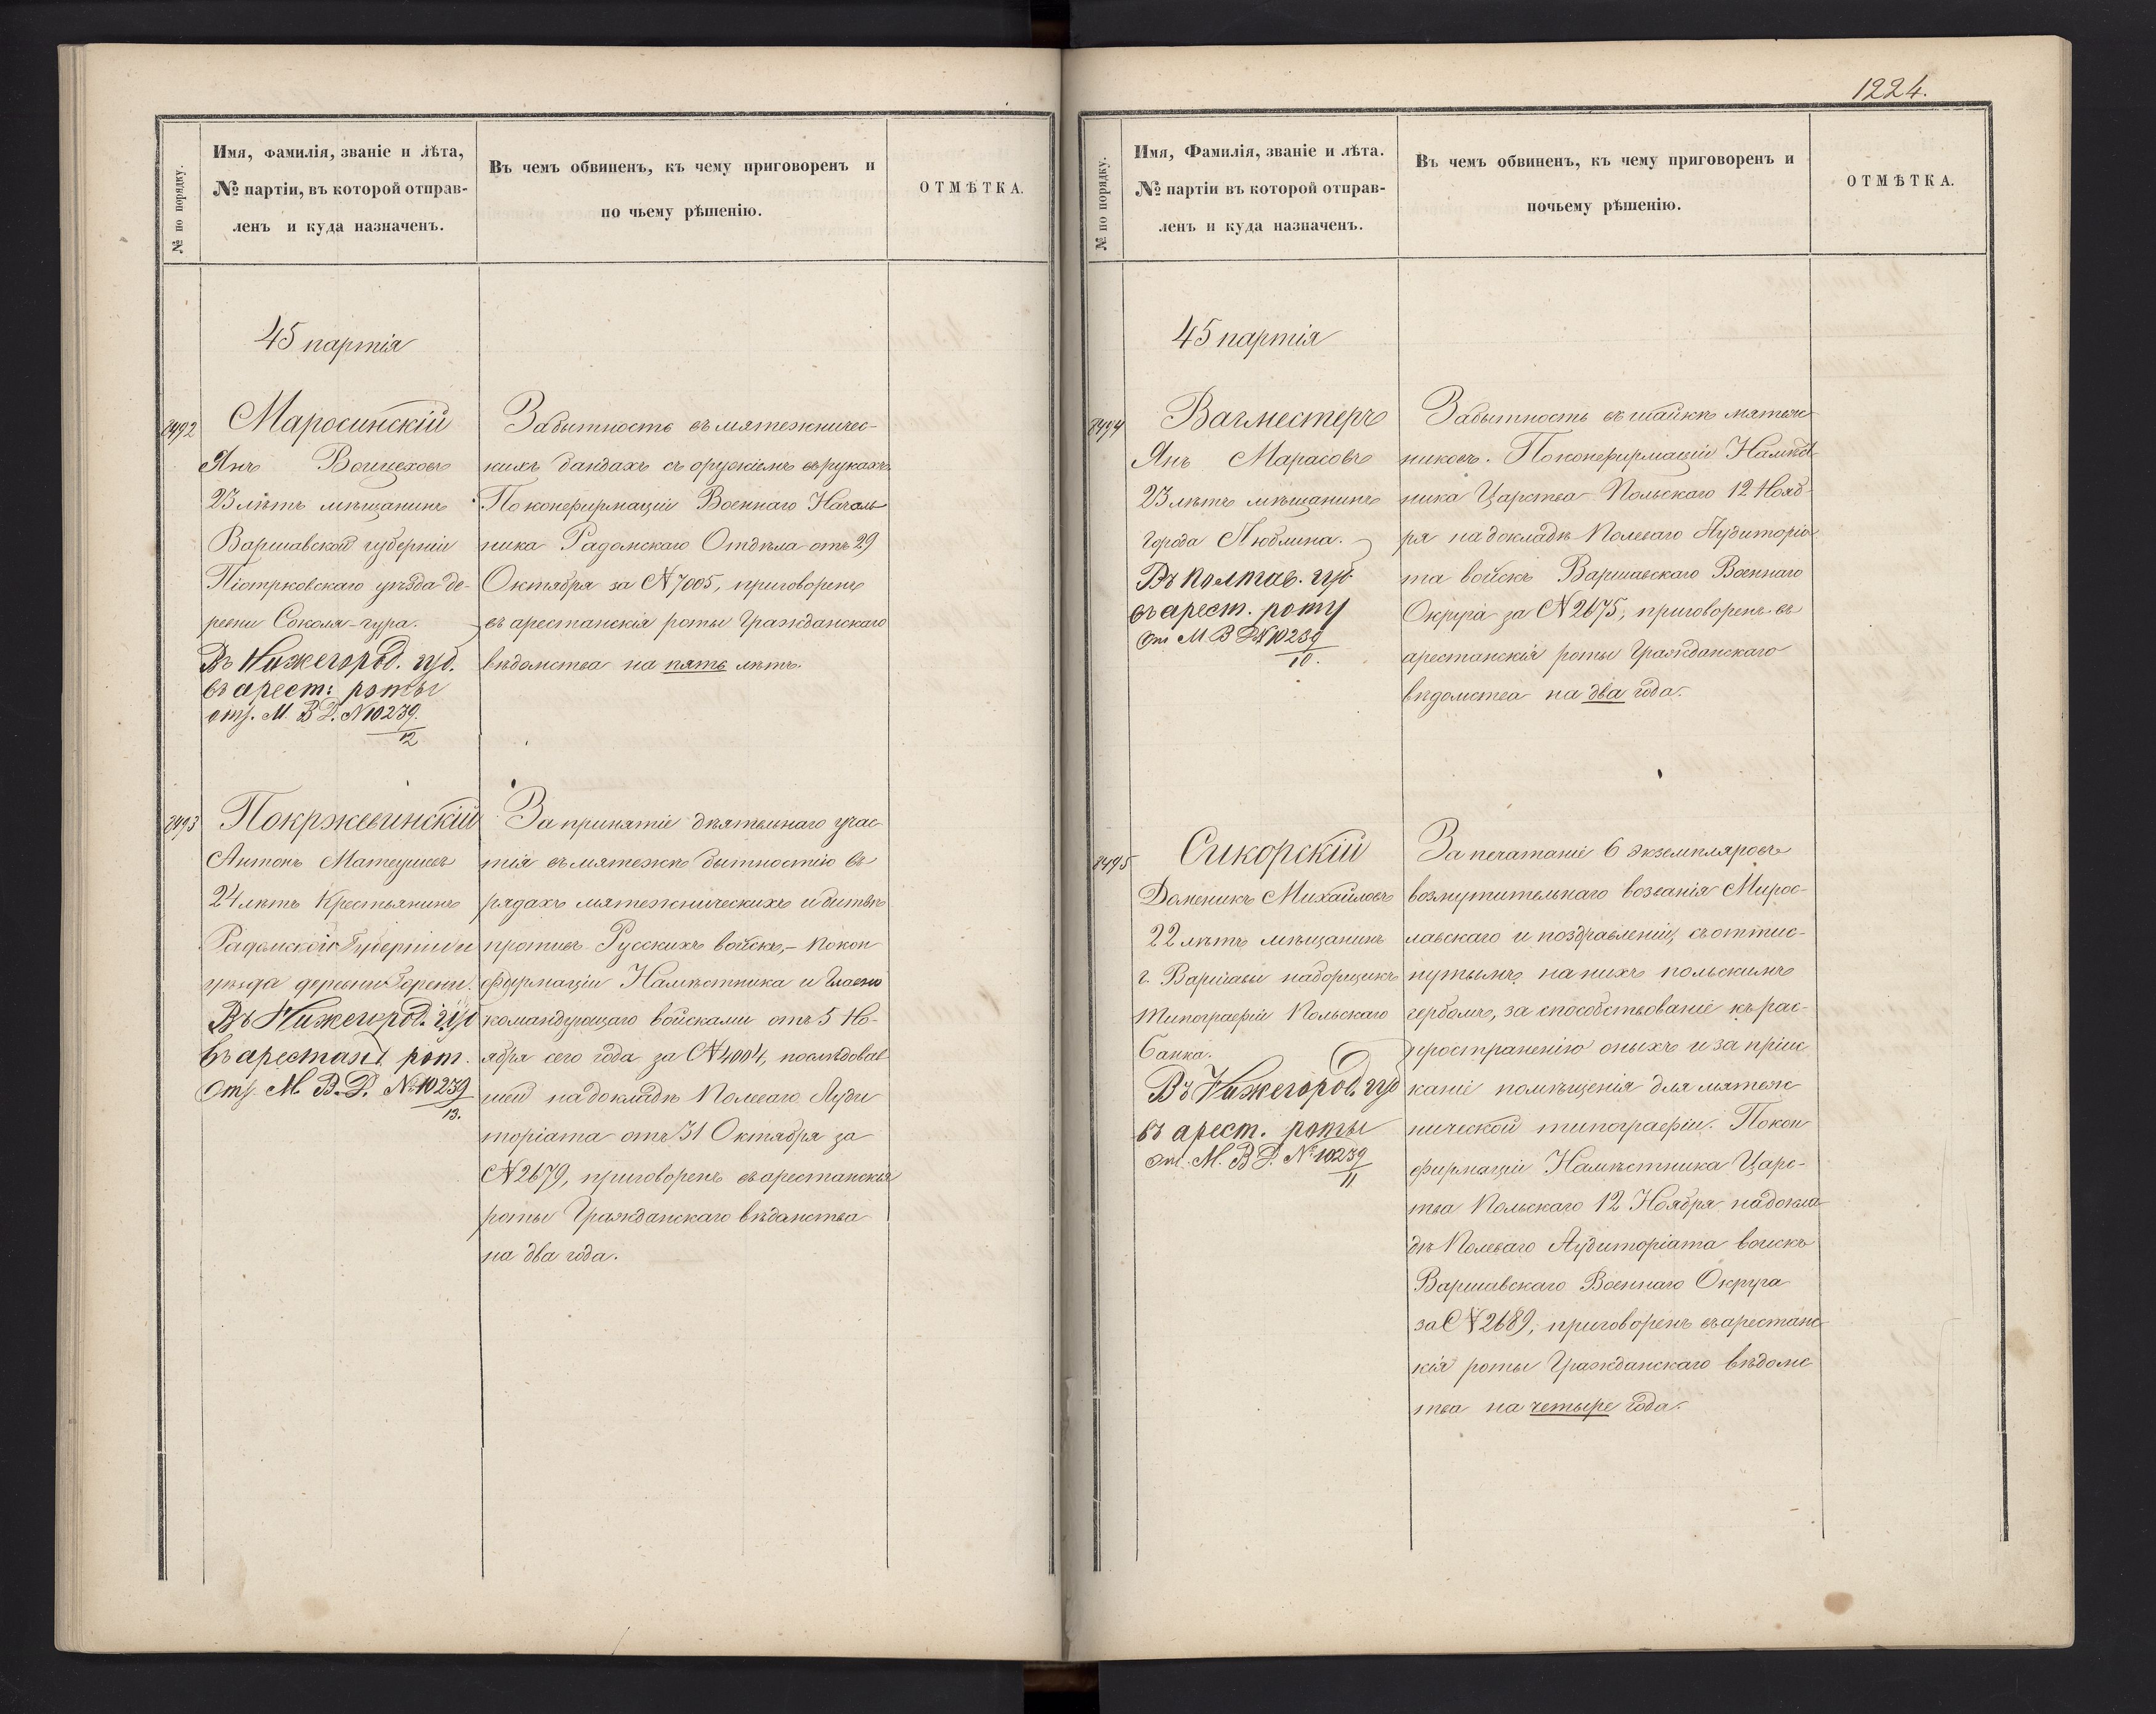 № по порядку.
Имя, Фамилія, званіе и лѣта,
№ партіи, въ которой отправ-
ленъ и куда назначенъ.
Въ чемъ обвиненъ, къ чему приговоренъ и
по чьему рѣшенію.
ОТМѢТКА.
45 партія
8492
Маросинскій
Янъ Войцеховъ
23 лѣтъ мѣщанинъ
Варшавской губерніи
Піотрковскаго уѣзда де-
ревни Соколя-гура.
Въ Нижегород. губ.
въ арест: роты
отз. М. В. Д. N 10239.
12
За бытность въ мятежничес-
кихъ бандахъ съ оружіемъ въ рукахъ.
По конфирмаціи Военнаго Началь
ника Радомскаго Отдѣла отъ 29
Октября за N 7005, приговоренъ
въ арестанскія роты Гражданскаго
вѣдомства на пять лѣтъ.
8493
Покржевинскій
Антонъ Матеушевъ
24 лѣтъ Крестьянинъ
Радомской Губерніи и
уѣзда деревни Горени.
Въ Нижегород. губ
въ арестант рот.
Отз. М. В. Д. № 10239
13.
За принятіе дѣятельнаго учас
тія въ мятежѣ бытностію въ
рядахъ мятежническихъ и битвѣ
противъ Русскихъ войскъ, – По кон
фирмаціи Намѣстника и Главно
командующаго войсками отъ 5 Но-
ября сего года за N 4004, послѣдовав
шей на докладѣ Полеваго Ауди
торіата отъ 31 Октября за
N 2679, приговоренъ въ арестанскія
роты Гражданскаго вѣдамства
на два года.
1224.
№ по порядку.
Имя, Фамилія, званіе и лѣта.
№ партіи въ которой отправ-
ленъ и куда назначенъ.
Въ чемъ обвиненъ, къ чему приговоренъ и
почьему рѣшенію.
ОТМѢТКА.
45 партія
8494
Вагместеръ
Янъ Марасовъ
23 лѣтъ мѣщанинъ
города Люблина.
Въ Полтав. губ.
въ арест. роту
От М В Д N 10239
10.
За бытность въ шайкѣ мятеж
никовъ. По конфирмаціи Намѣст
ника Царства Польскаго 12 Нояб-
ря на докладѣ Полеваго Аудиторіа
та войскъ Варшавскаго Военнаго
Округа за N 2675, приговоренъ въ
арестанскія роты Гражданскаго
вѣдомства на два года.
8495
Сикорскій
Доменикъ Михайловъ
22 лѣтъ мѣщанинъ
г. Варшавы наборщикъ
типографіи Польскаго
банка.
Въ Нижегород. губ
въ арест. роты
От. М. В Д. № 10239
11
За печатаніе 6 экземпляровъ
возмутительнаго воззванія Мирос-
лавскаго и поздравленій, съ оттис-
нутымъ на нихъ польскимъ
гербомъ, за способствованіе къ рас-
пространенію оныхъ и за пріис
каніе помѣщенія для мятеж
нической типографіи. По кон
фирмаціи Намѣстника Царс-
тва Польскаго 12 Ноября на докла-
дѣ Полеваго Аудиторіата воискъ
Варшавскаго Военнаго Округа
за N 2689, приговоренъ въ арестанс
кія роты Гражданскаго вѣдомс
тва на четыре года.